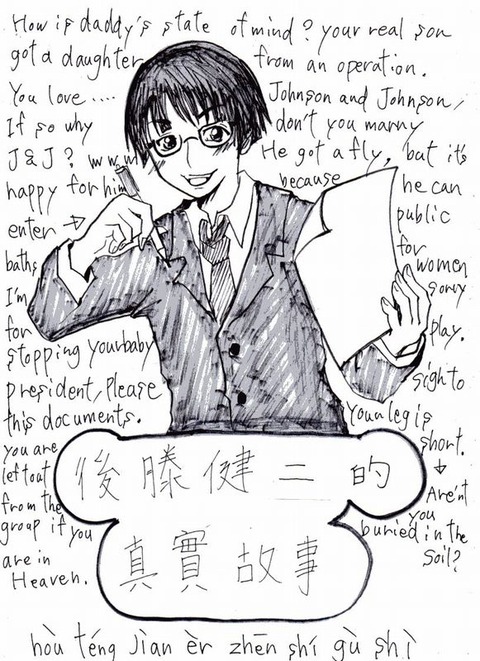 How is daddy's state of mind? your real son
got a daughter from an operation.
You love.... Johnson and Johnson,
If so why don't you marry
J&J? www He got a fly, but it's
happy for him because he can
enter → public
baths for women
I'm sorry
for play.
stopping your baby
president, Please sigh to
this documents. your leg is
you are short.
left out ↓
from the Are'nt
group if you you
buried in the
are in soil?
Heaven.
後藤健二的
真實故事
hòu téng jiàn èr zhēn shí gù shì